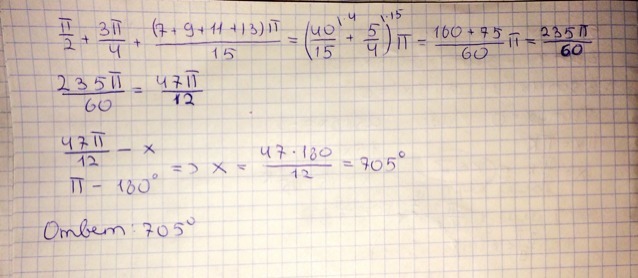 π/2 + 3π/4 + (7+9+11+13)π/15 = (40/15 ^{\·4} + 5/4 ^{\·15})π = 160+75/60 π = 235π/60
235π/60 = 47π/12
47π/12 – x
π – 180° => x = 47·180/12 = 705°
Ответ: 705°